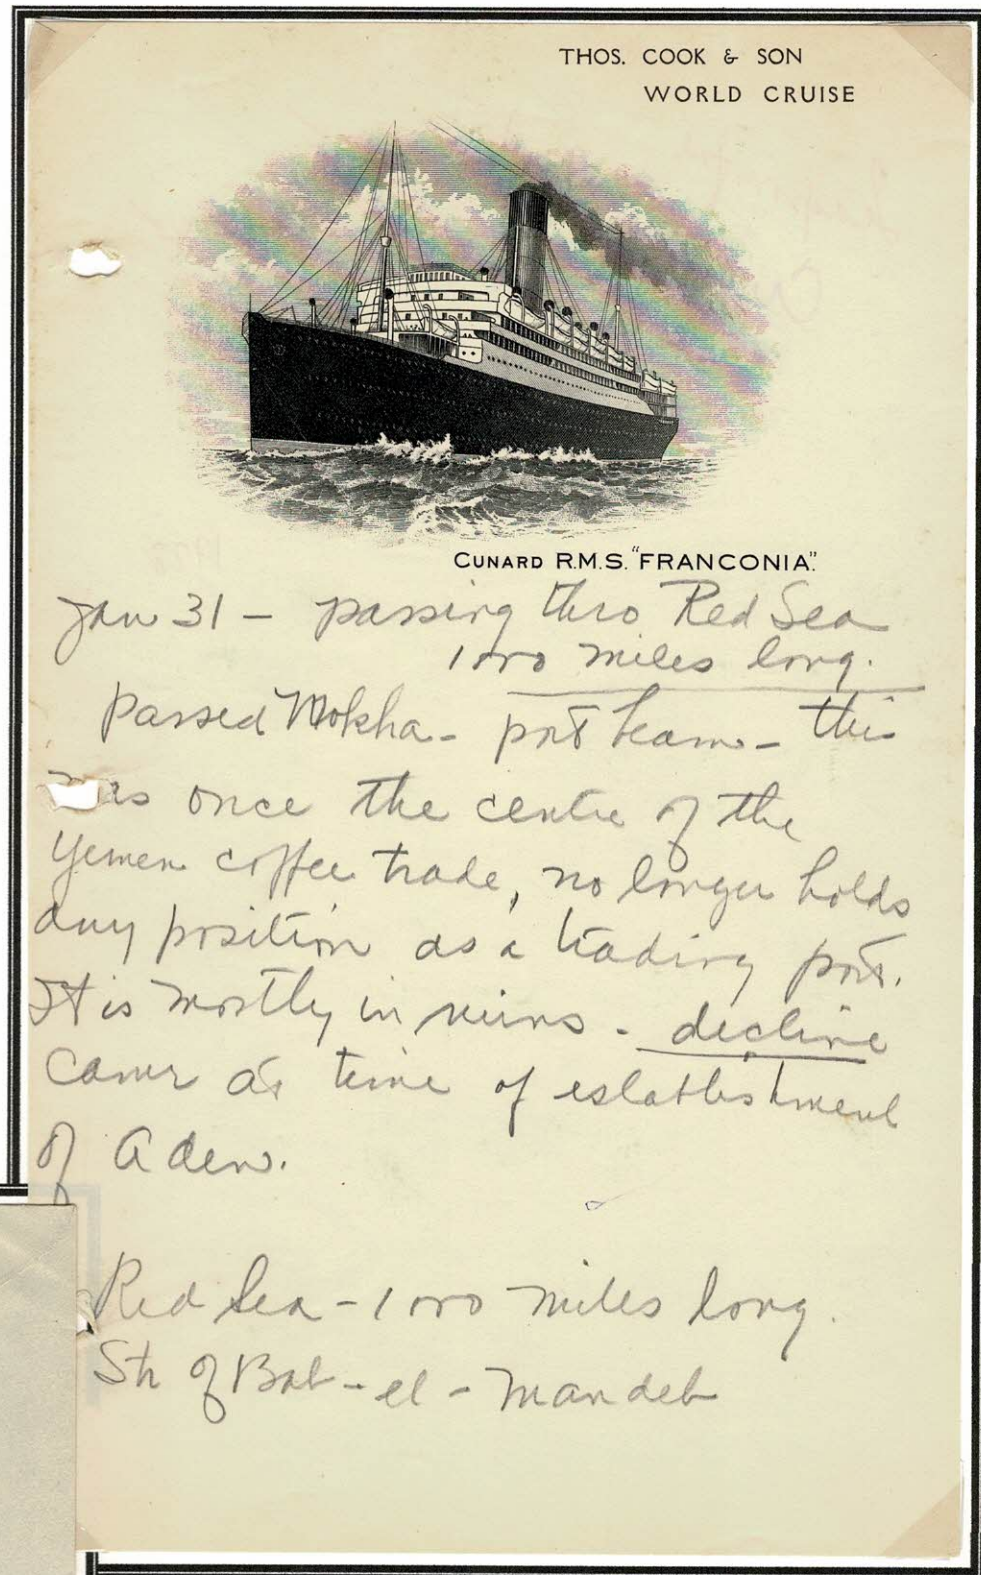 THOS. COOK & SON
WORLD CRUISE
CUNARD R.M.S. "FRANCONIA".
Jan 31 - passing thro Red Sea
1000 miles long.
Passed Mokha - port beam - this
was once the centre of the
Yemen coffee trade, no longer holds
any position as a trading port.
It is mostly in ruins - decline
came at time of establishment
of Aden.
Red Sea - 1000 miles long.
Str of Bab - el - Mandeb